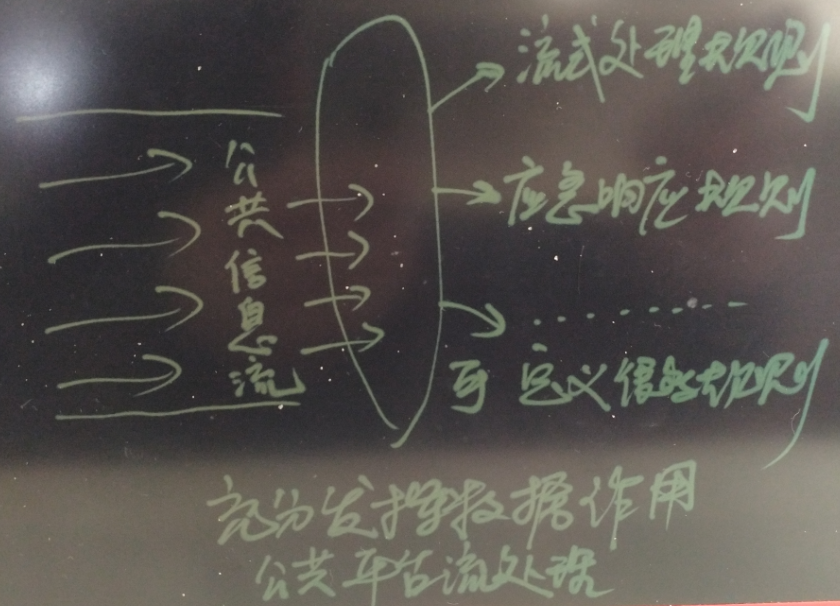 公共信息流
流式处理规则
应急响应规则
. . . . . . . .
可定义信息规则
充分发挥数据作用
公共平台流处理